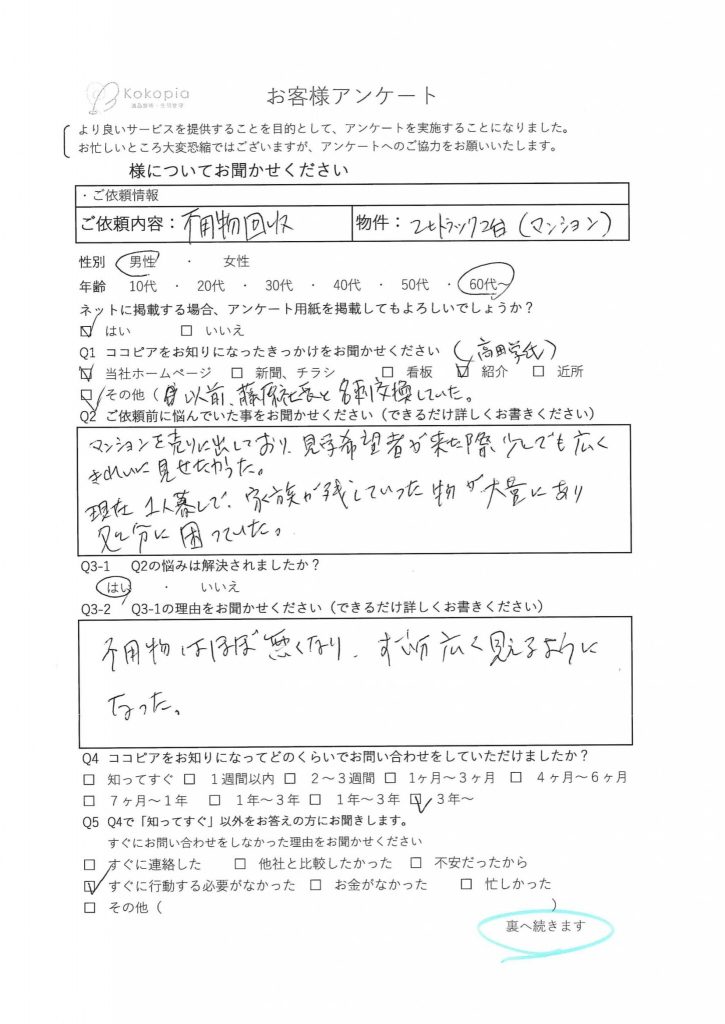 Kokopia
遺品整理・生前整理
お客様アンケート
より良いサービスを提供することを目的として、アンケートを実施することになりました。
お忙しいところ大変恐縮ではございますが、アンケートへのご協力をお願いいたします。
様についてお聞かせください
・ご依頼情報
ご依頼内容：不用物回収 物件：2tトラック2台(マンション)
性別 男性 ・ 女性
年齢 10代 ・ 20代 ・ 30代 ・ 40代 ・ 50代 ・ 60代～
ネットに掲載する場合、アンケート用紙を掲載してもよろしいでしょうか？
☑ はい □ いいえ
Q1 ココピアをお知りになったきっかけをお聞かせください (高田学氏)
☑ 当社ホームページ □ 新聞、チラシ □ 看板 ☑ 紹介 □ 近所
☑ その他（ 以前、藤原社長と名刺交換していた。
Q2 ご依頼前に悩んでいた事をお聞かせください（できるだけ詳しくお書きください）
マンションを売りに出しており、見学希望者が来た際少しでも広く
きれいに見せたかった。
現在1人暮しで、家族が残していった物が大量にあり
処分に困っていた。
Q3-1 Q2の悩みは解決されましたか？
はい ・ いいえ
Q3-2 Q3-1の理由をお聞かせください（できるだけ詳しくお書きください）
不用物はほぼ無くなり、ずい分広く見えるように
なった。
Q4 ココピアをお知りになってどのくらいでお問い合わせをしていただけましたか？
□ 知ってすぐ □ 1週間以内 □ 2～3週間 □ 1ヶ月～3ヶ月 □ 4ヶ月～6ヶ月
□ 7ヶ月～1年 □ 1年～3年 □ 1年～3年 ☑ 3年～
Q5 Q4で「知ってすぐ」以外をお答えの方にお聞きします。
すぐにお問い合わせをしなかった理由をお聞かせください
□ すぐに連絡した □ 他社と比較したかった □ 不安だったから
☑ すぐに行動する必要がなかった □ お金がなかった □ 忙しかった
□ その他（ ）
裏へ続きます